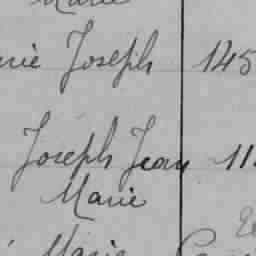 Marie
Joseph 145
Joseph Jean 11
Marie
Marie